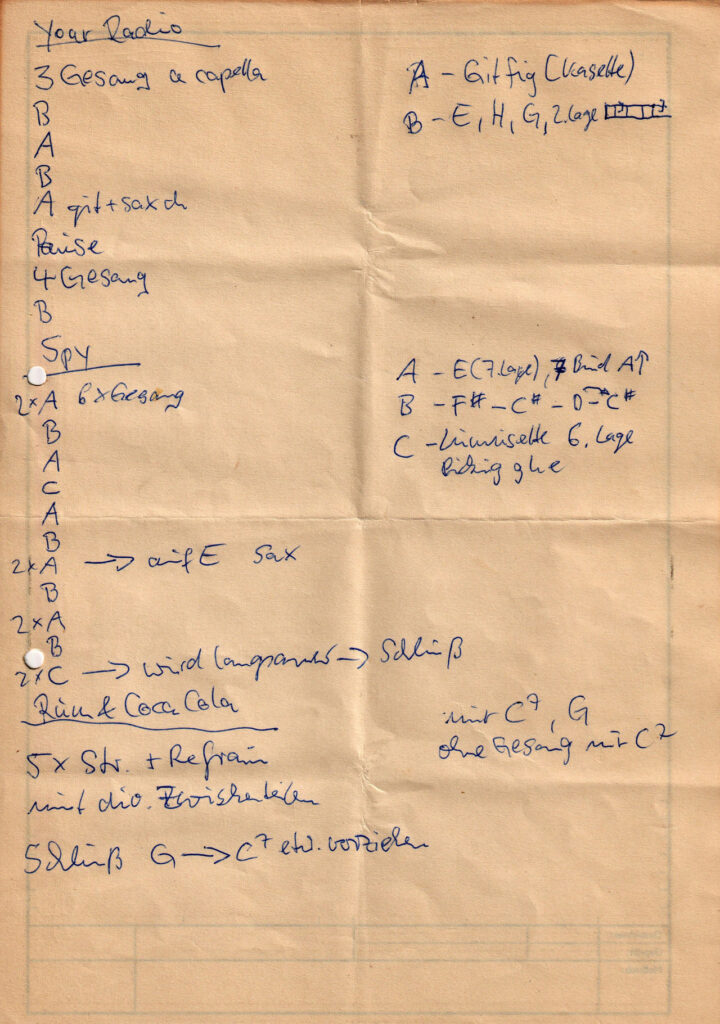 Your Radio
3 Gesang a capella
B
A
B
A git + sax ch
Pause
4 Gesang
B
A - Gitfig (Kasette)
B - E, H, G, 2. Lage
Spy
2x A 6 x Gesang
B
A
C
A
B
2x A → auf E Sax
B
2x A
B
2x C → wird langsamer → Schluß
A - E (7. Lage), Bund A↑
B - F# - C# - D - C#
C - 6. Lage
Rum & Coca Cola
5 x Str. + Refrain
mit div. Zwischenteilen
Schluß G → C7 etw. vorziehen
mit C7, G
ohne Gesang mit C7